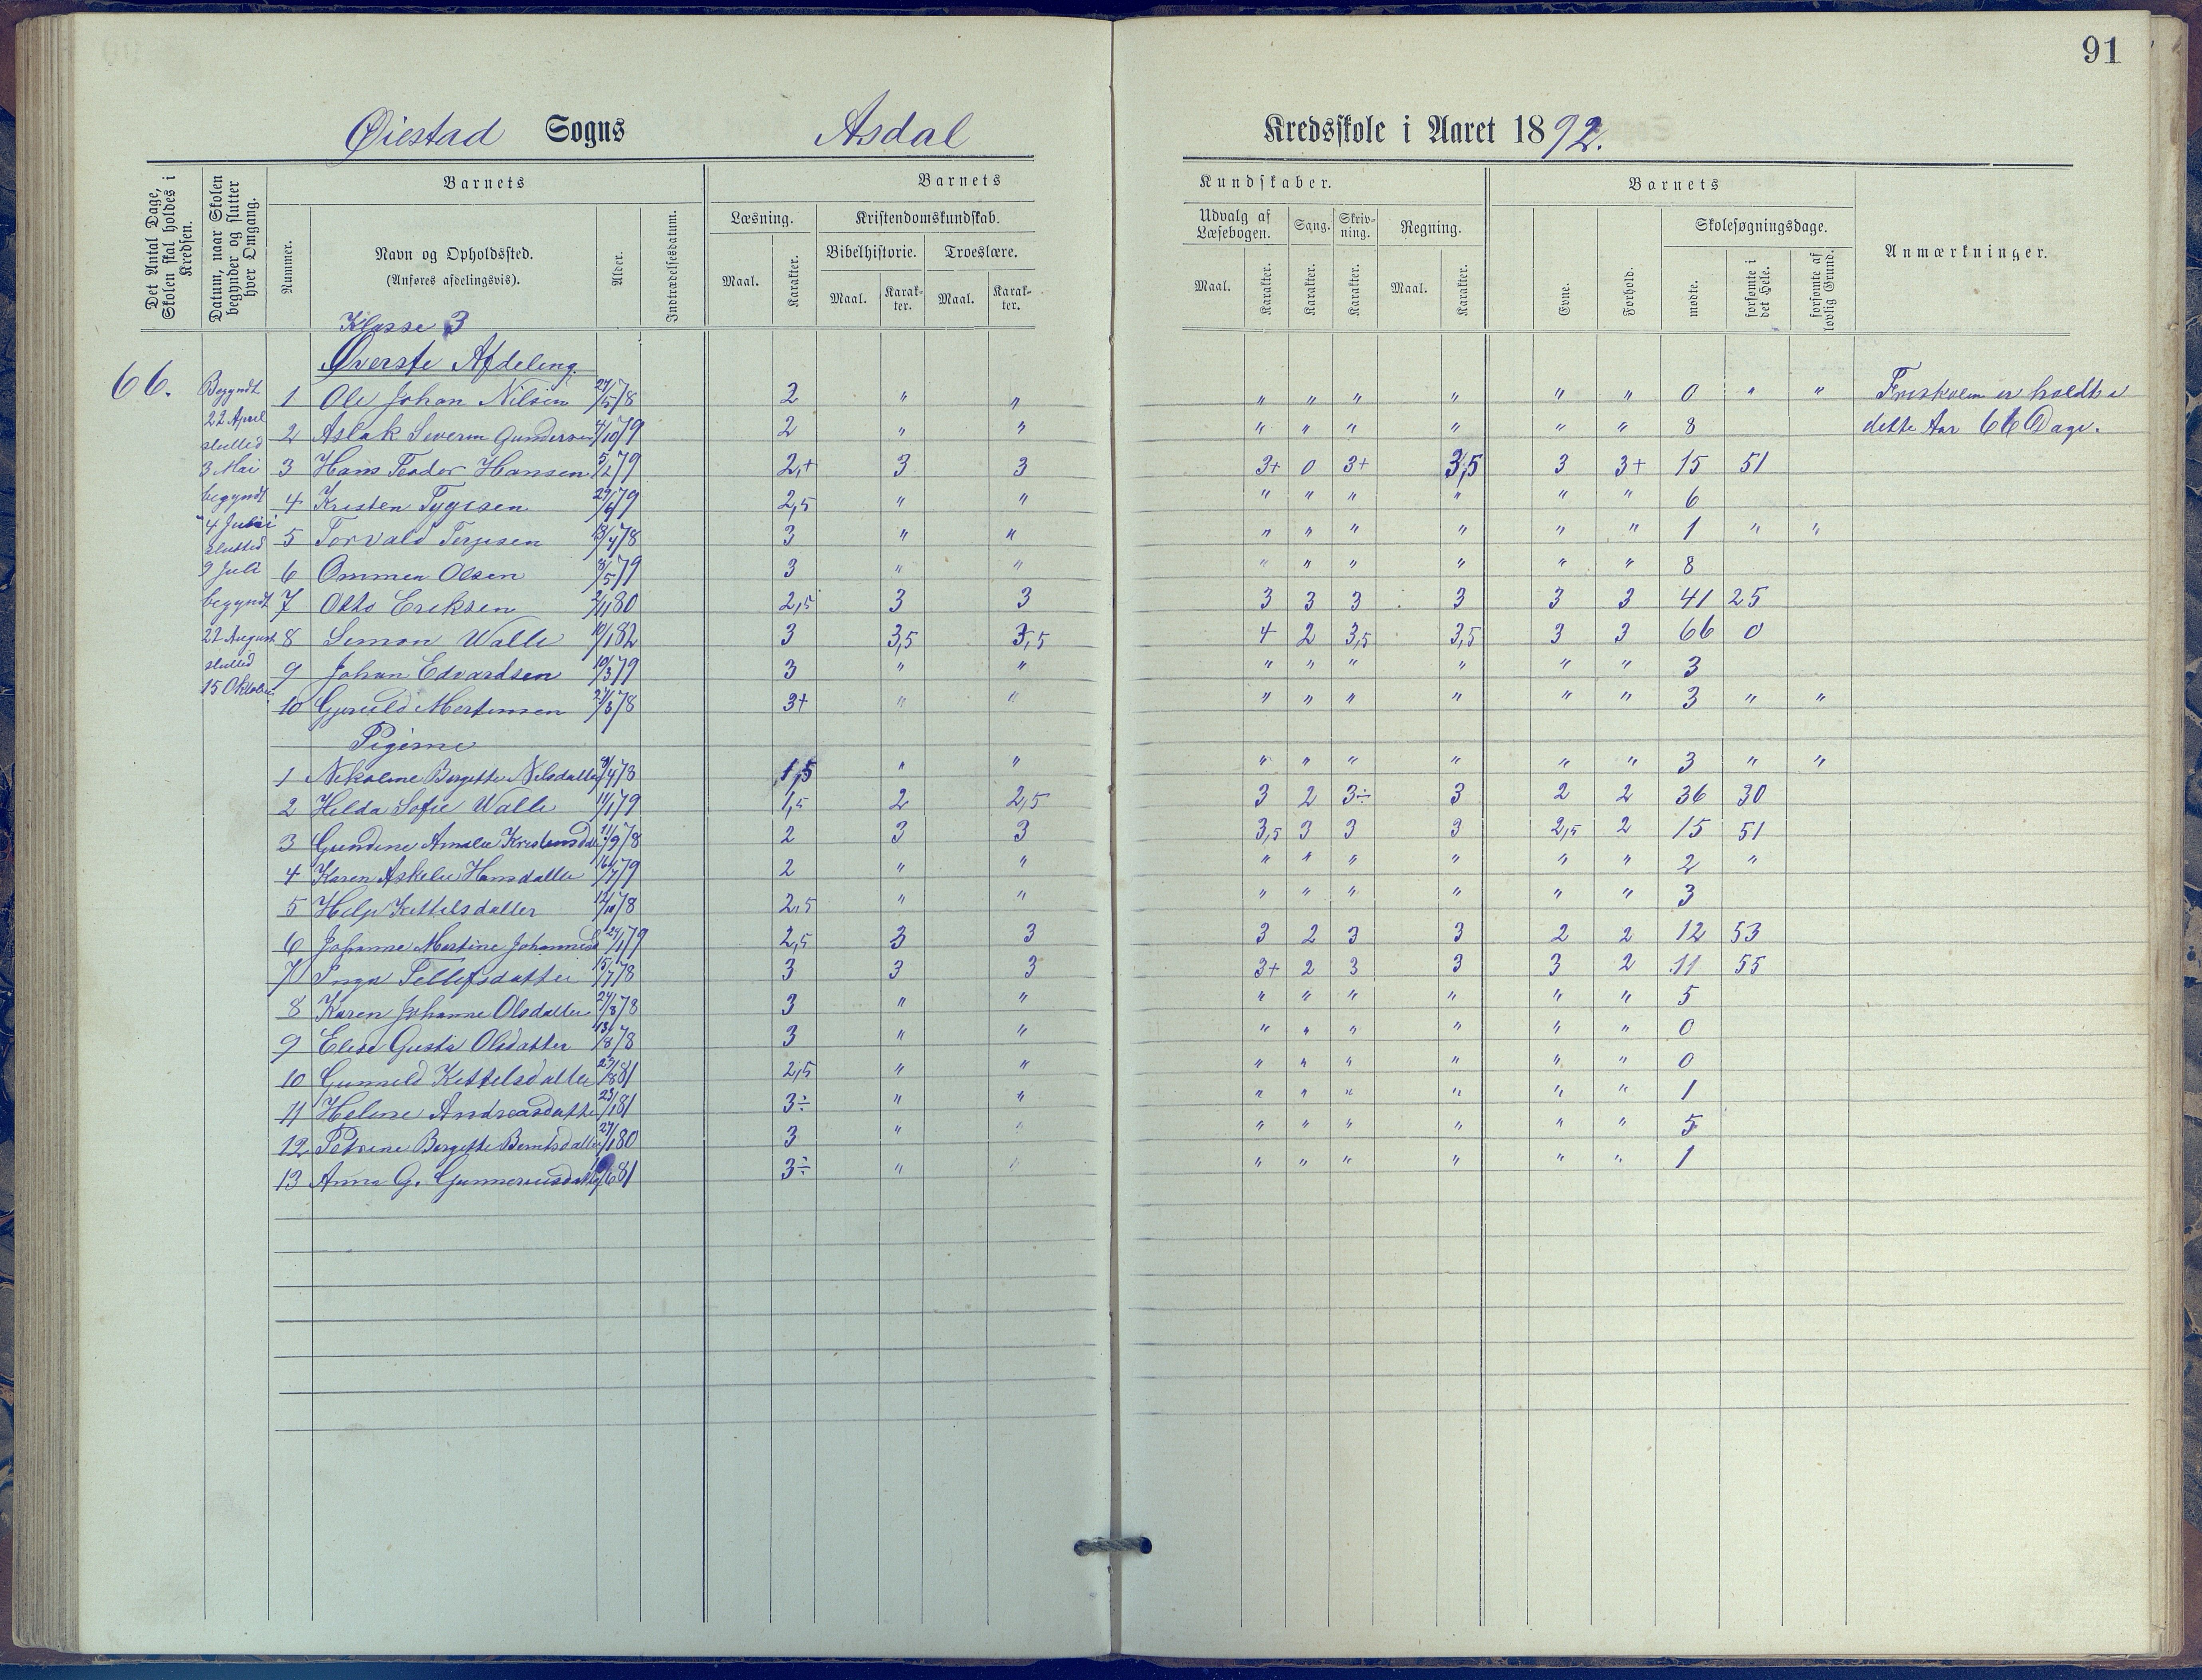 91
Øiestad Sogns Asdal Kredsskole i Aaret 1892.
Det Antal Dage, Skolen skal holdes i Kredsen.
Datum, naar Skolen begynder og slutter hver Omgang.
Barnets
Nummer.
Navn og Opholdssted.
(Anføres afdelingsvis).
Alder.
Indtrædelsesdatum.
Barnets Kundskaber.
Læsning. Kristendomskundskab.
Maal. Karakter.
Bibelhistorie. Troeslære.
Maal. Karakter. Maal. Karakter.
Udvalg af Læsebogen. Sang. Skrivning. Regning.
Maal. Karakter. Karakter. Karakter. Maal. Karakter.
Barnets
Evne. Forhold. Skolesøgningsdage.
mødte. forsømte i det Hele. forsømte af lovlig Grund.
Anmærkninger.
Klasse 3
Øverste Afdeling.
66.
Begyndt
22 April
slutted
3 Mai
begyndt
4 Juli
slutted
9 Juli
begyndt
22 August
slutted
15 Oktober
1 Ole Johan Nilsen 24/5 78 2 " " " " " " " " 0 " "
2 Aslak Severin Gundersen 4/10 79 2 " " " " " " " " 8
3 Hans Teodor Hansen 5/2 79 2+ 3 3 3+ 0 3+ 3,5 3 3+ 15 51
4 Kristen Tygesen 29/6 79 2,5 " " " " " " " " 6
5 Torvald Terjesen 13/4 78 3 " " " " " " " " 1 " "
6 Ommen Olsen 3/5 79 3 " " " " " " " " 8
7 Otto Eriksen 2/11 80 2,5 3 3 3 3 3 3 3 3 41 25
8 Simon Walle 10/1 82 3 3,5 3,5 4 2 3,5 3,5 3 3 66 0
9 Johan Edvardsen 10/3 79 3 " " " " " " " " 3
10 Gjeruld Mortensen 27/3 78 3+ " " " " " " " " 3 " "
Pigerne
1 Nikoline Bergette Nilsdatter 8/4 78 1,5 " " " " " " " " 3 " "
2 Hilda Sofie Walle 11/1 79 1,5 2 2,5 3 2 3÷ 3 2 2 36 30
3 Gundine Amalie Kristensdtr 11/9 78 2 3 3 3,5 3 3 3 2,5 2 15 51
4 Karen Askelie Hansdatter 16/7 79 2 " " " " " " " " 2 "
5 Helje Kittelsdatter 12/10 78 2,5 " " " " " " " " 3
6 Johanne Martine Johannesd 24/1 79 2,5 3 3 3 2 3 3 2 2 12 53
7 Inga Tellefsdatter 15/7 78 3 3 3 3+ 2 3 3 3 2 11 55
8 Karen Johanne Olsdatter 24/8 78 3 " " " " " " " " 5
9 Elise Gusta Olsdatter 13/8 78 3 " " " " " " " " 0
10 Gunnild Kittelsdatter 25/8 81 2,5 " " " " " " " " 0
11 Helene Andreasdatter 23/1 81 3÷ " " " " " " " " 1
12 Petrine Bergette Berntsdatter 27/1 80 3 " " " " " " " " 5
13 Anna G. Gunneriusdatter 6 81 3÷ " " " " " " " " 1
Friskolen er holdt i
dette Aar 66 Dage.